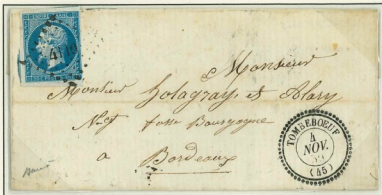 Monsieur
Monsieur Holagray et Alary
Negt fosse Bourgogne
a Bordeaux
TOMBEBŒUF
4
NOV.
(45)